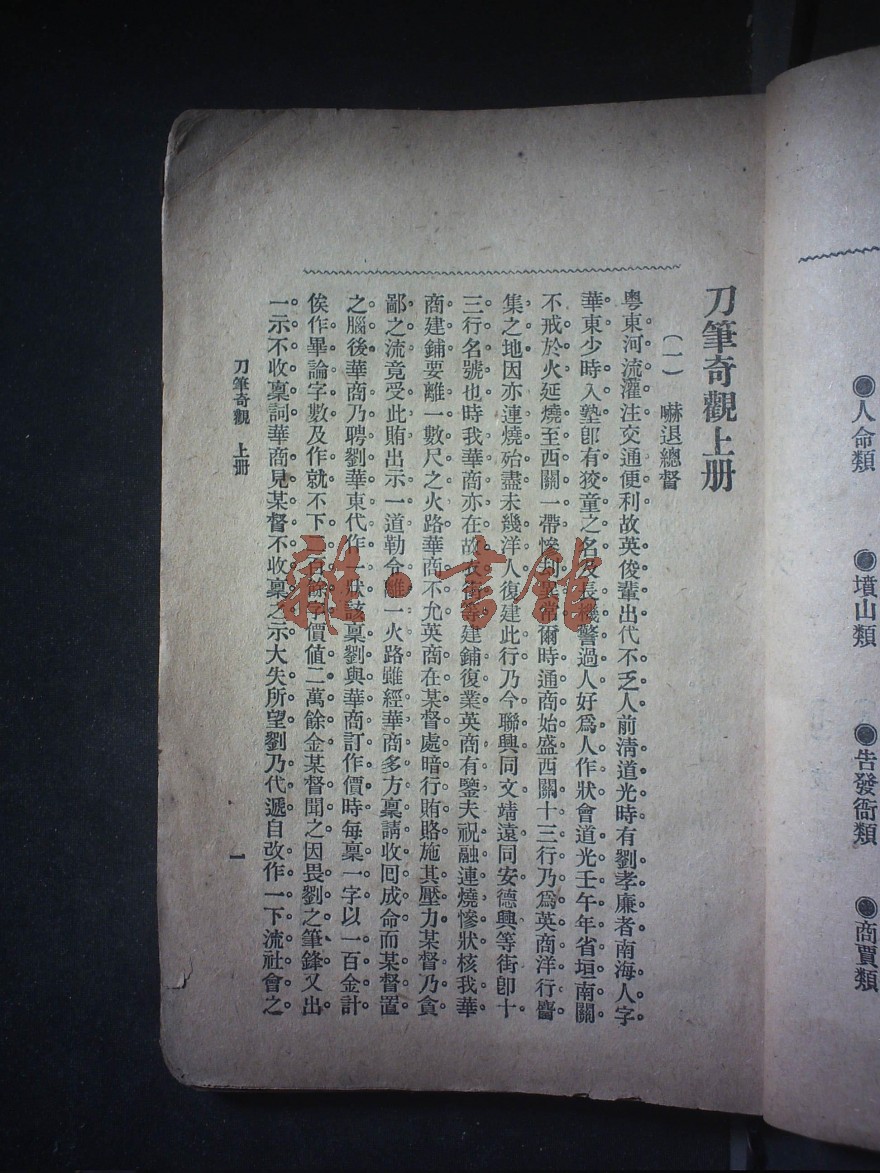 ●人命類
●墳山類
●告發衙類
●商賈類
刀筆奇觀上册
(一) 嚇退總督
粤東河流灌注交通便利故英俊輩出代不乏人前清道光時有劉孝廉者南海人字
華東少時入塾卽有狡童之名及長機警過人好爲人作狀會道光壬午年省垣南關
不戒於火延燒至西關一帶慘判尋常爾時通商始盛西關十三行乃爲英商洋行薈
集之地因亦連燒殆盡未幾洋人復建此行乃今聯興同文靖遠同安德興等街卽十
三行名號也時我華商亦在故衣街等建鋪復業英商有鑒夫祝融連燒慘狀核我華
商建鋪要離一數尺之火路華商不允英商在某督處暗行賄賂施其壓力某督乃貪
鄙之流竟受此賄出示一道勒令離一火路雖經華商多方稟請收回成命而某督置
之腦後華商乃聘劉華東代作一狀該稟劉與華商訂作價時每稟一字以一百金計
俟作畢論字數及作就不下二百餘字價值二萬餘金某督聞之因畏劉之筆鋒又出
一示不收稟詞華商見某督不收稟之示大失所望劉乃代遞自改作一下流社會之
刀筆奇觀 上册
一
雜·書館